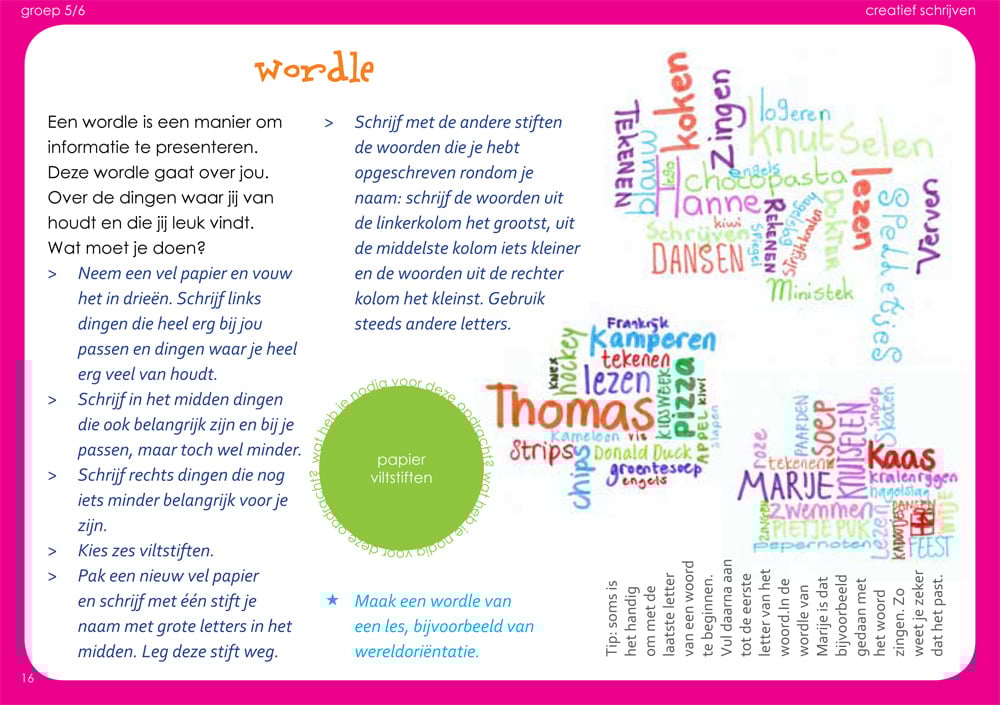 groep 5/6
creatief schrijven
wordle
Een wordle is een manier om
informatie te presenteren.
Deze wordle gaat over jou.
Over de dingen waar jij van
houdt en die jij leuk vindt.
Wat moet je doen?
> Neem een vel papier en vouw
het in drieën. Schrijf links
dingen die heel erg bij jou
passen en dingen waar je heel
erg veel van houdt.
> Schrijf in het midden dingen
die ook belangrijk zijn en bij je
passen, maar toch wel minder.
> Schrijf rechts dingen die nog
iets minder belangrijk voor je
zijn.
> Kies zes viltstiften.
> Pak een nieuw vel papier
en schrijf met één stift je
naam met grote letters in het
midden. Leg deze stift weg.
> Schrijf met de andere stiften
de woorden die je hebt
opgeschreven rondom je
naam: schrijf de woorden uit
de linkerkolom het grootst, uit
de middelste kolom iets kleiner
en de woorden uit de rechter
kolom het kleinst. Gebruik
steeds andere letters.
wat heb je nodig voor deze opdracht? wat heb je nodig voor deze opdracht?
papier
viltstiften
★ Maak een wordle van
een les, bijvoorbeeld van
wereldoriëntatie.
TEKENEN
blauw
koken
Zingen
logeren
knutselen
lego
engels
chocopasta
Hanne
kiwi
Schrijven
DANSEN
spiegel
REKENEN
hagelslag
Strijkkralen
DOKTER
lezen
Spelletjes
Verven
Ministek
Frankrijk
Kamperen
tekenen
knex
hockey
lezen
Thomas
KIDSWEEK
pizza
kiwi
APPEL
slapen
Kameleon
vis
Strips
Donald Duck
chips
groentesoep
engels
roze
PAARDEN
SOEP
KNUTSELEN
Snoep
Skaten
tekenen
Kaas
MARIJE
kralenrijgen
hagelslag
zwemmen
ZINGEN
PIETJE PUK
pepernoten
Lezen
KADOOTJES
DANSEN
WITJE
FEEST
Tip: soms is
het handig
om met de
laatste letter
van een woord
te beginnen.
Vul daarna aan
tot de eerste
letter van het
woord.In de
wordle van
Marije is dat
bijvoorbeeld
gedaan met
het woord
zingen. Zo
weet je zeker
dat het past.
16